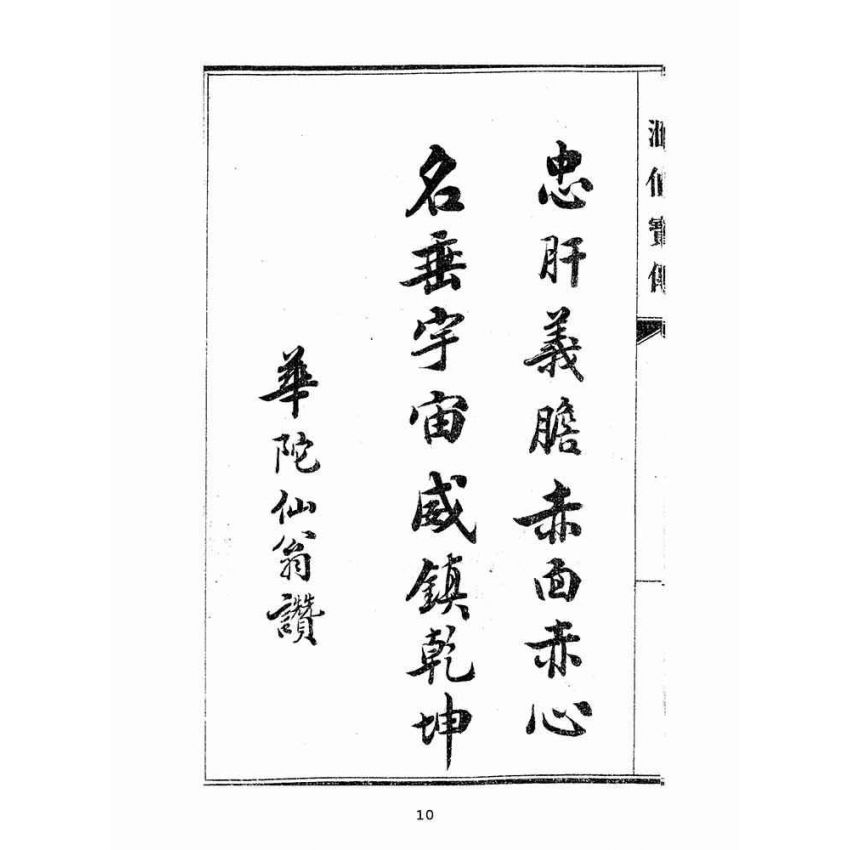 寶傳
忠肝義膽赤面赤心
名垂宇宙威鎮乾坤
華陀仙翁讚
10